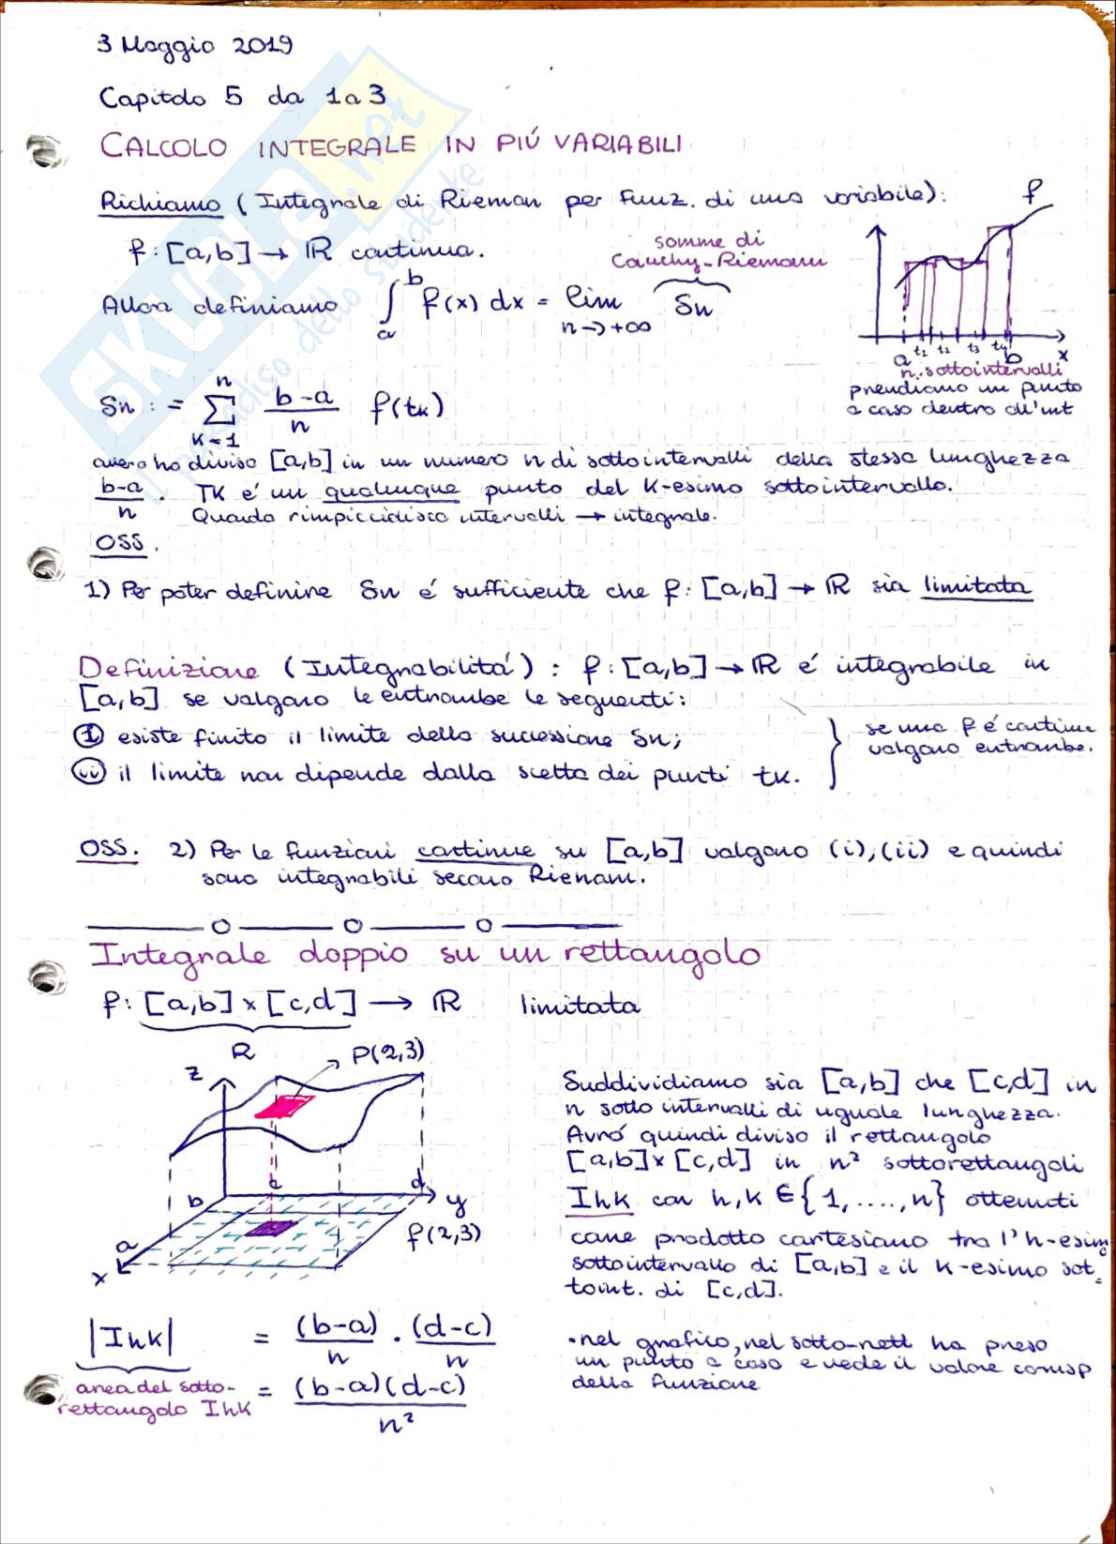 3 Maggio 2019
Capitolo 5 da 1 a 3
CALCOLO INTEGRALE IN PIÚ VARIABILI
Richiamo (Integrale di Rieman per funz. di una variabile):
f: [a,b] → ℝ continua.
somme di
Cauchy-Riemann
Allora definiamo ∫_a^b f(x) dx = lim_{n→+∞} Sn
f
a t₁ t₂ t₃ t₄ b x
n. sottointervalli
prendiamo un punto
a caso dentro all'int
Sn := ∑_{k=1}^{n} (b-a)/n f(tk)
ovvero ho diviso [a,b] in un numero n di sottointervalli della stessa lunghezza
(b-a)/n. Tk é un qualunque punto del k-esimo sottointervallo.
Quando rimpicciolisco intervalli → integrale.
OSS.
1) Per poter definire Sn é sufficiente che f: [a,b] → ℝ sia limitata
Definizione (Integrabilitá): f: [a,b] → ℝ é integrabile in
[a,b] se valgono le entrambe le seguenti:
(i) esiste finito il limite della successione Sn;
(ii) il limite non dipende dalla scelta dei punti tk.
se una f é continua
valgono entrambe.
OSS. 2) Per le funzioni continue su [a,b] valgono (i),(ii) e quindi
sono integrabili secono Riemann.
Integrale doppio su un rettangolo
f: [a,b] x [c,d] → ℝ limitata
R
z
P(2,3)
b c d y
a
x
f(2,3)
Suddividiamo sia [a,b] che [c,d] in
n sotto intervalli di uguale lunghezza.
Avró quindi diviso il rettangolo
[a,b]x[c,d] in n² sottorettangoli
Ihk con h,k ∈ {1,....,n} ottenuti
come prodotto cartesiano tra l'h-esim
sottointervallo di [a,b] e il k-esimo sot_
toint. di [c,d].
|Ihk| = (b-a)/n · (d-c)/n
area del sotto-
rettangolo Ihk
= (b-a)(d-c)/n²
•nel grafico, nel sotto-rett ha preso
un punto a caso e vede il valore corrisp
della funzione
SKUOLA.net
paradiso dello studente